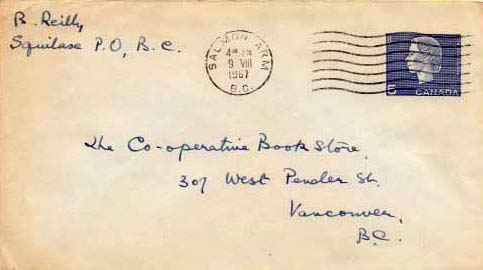 B. Reilly
Squilax P.O, B.C.
SALMON ARM
4 PM
9 VIII
1967
B.C.
5
CANADA
The Co-operative Book Store,
307 West Pender St.
Vancouver,
B.C.